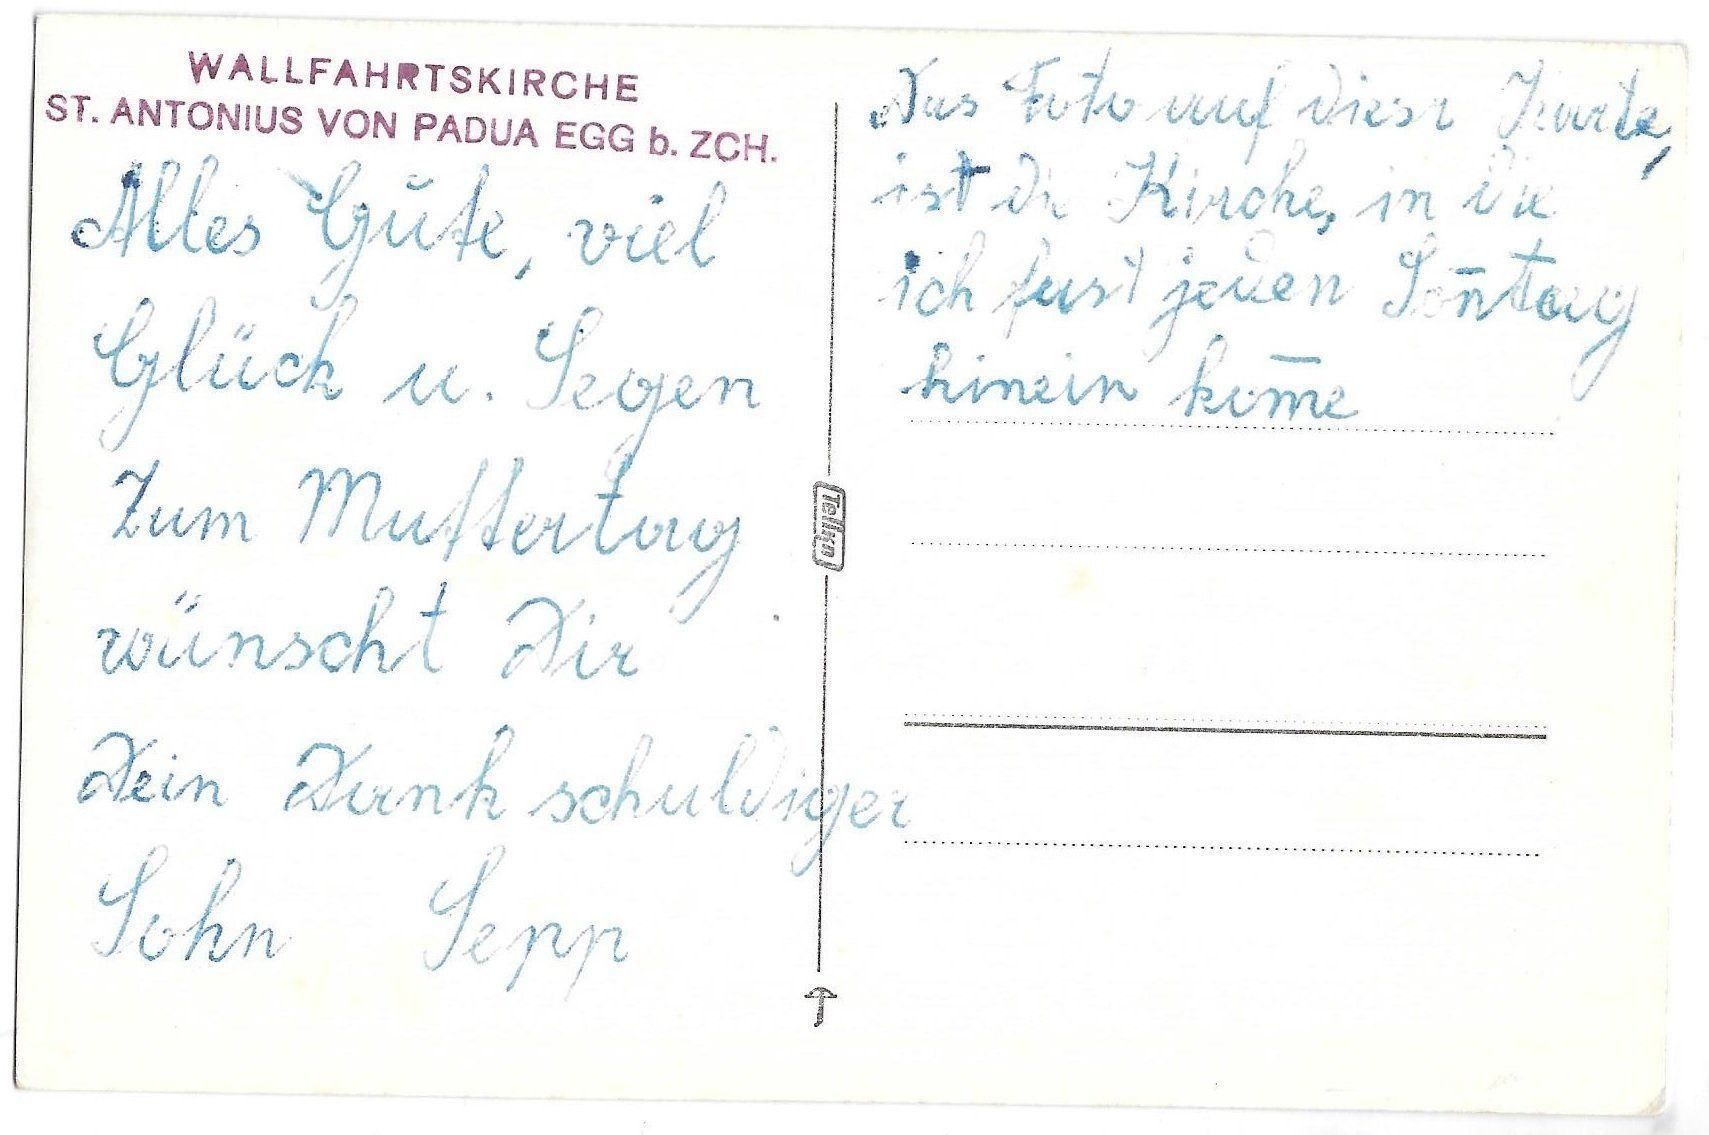 WALLFAHRTSKIRCHE
ST. ANTONIUS VON PADUA EGG b. ZCH.
Alles Gute, viel
Glück u. Segen
Zum Muttertag
wünscht Dir
Dein Dank schuldiger
Sohn Sepp
Telko
Das Foto auf dieser Karte,
ist die Kirche, in die
ich fast jeden Son̄tag
hinein kom̄e